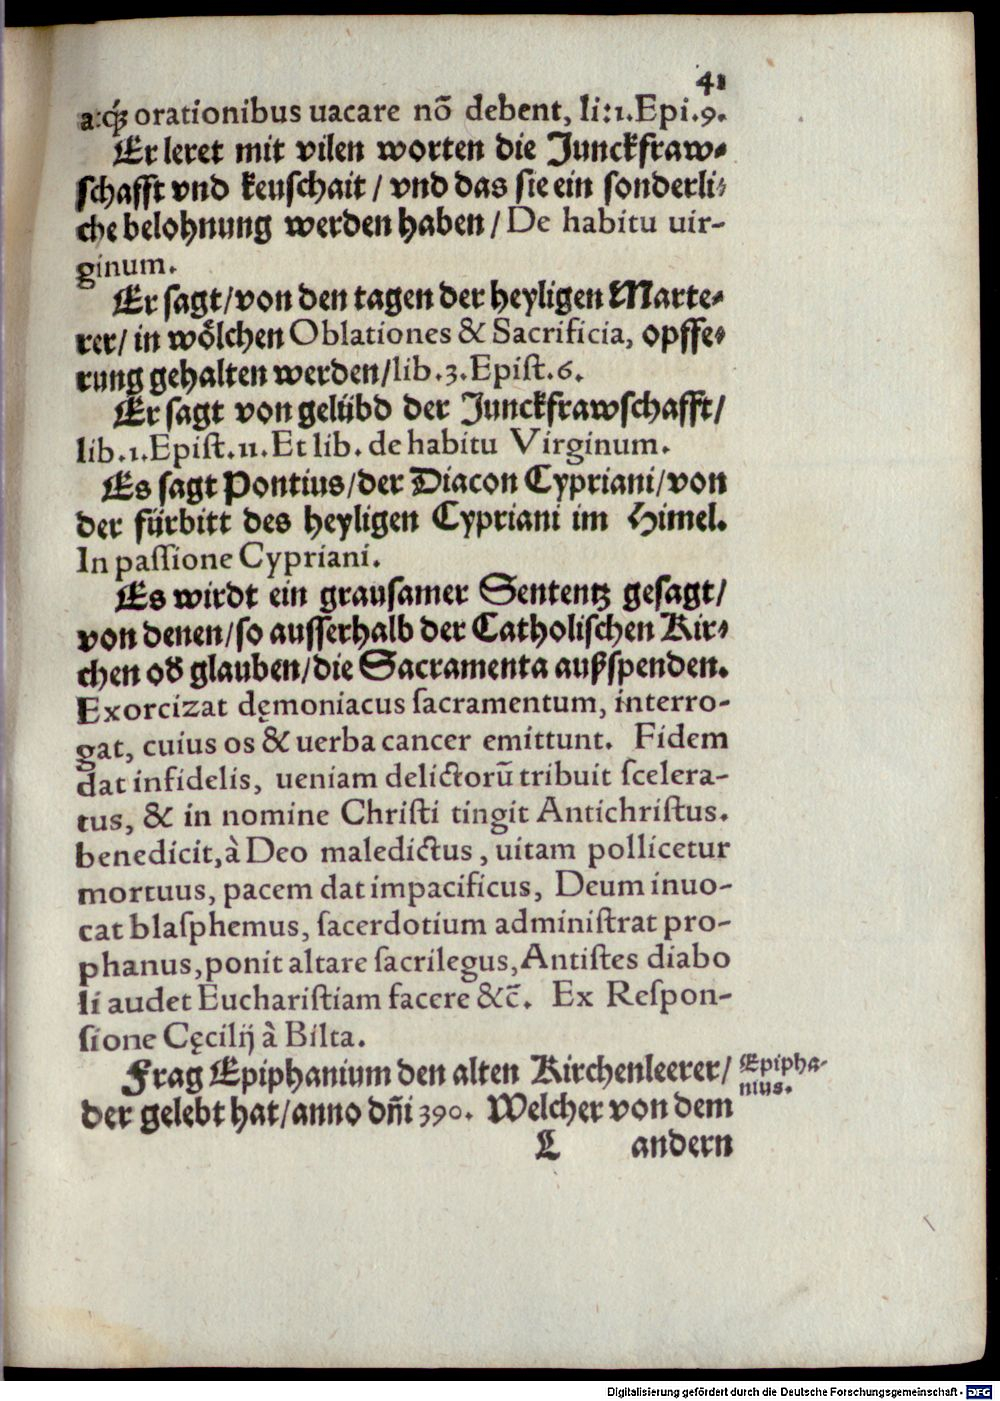 41
a:q́ꝫ orationibus uacare nō debent, li:1.Epi.9.
Er leret mit vilen worten die Junckfraw⸗
schafft vnd keuschait / vnd das sie ein sonderli⸗
che belohnung werden haben / De habitu uir-
ginum.
Er sagt/von den tagen der heyligen Marte⸗
rer/ in wöͤlchen Oblationes & Sacrificia, opffe⸗
rung gehalten werden/lib.3.Epist.6.
Er sagt von gelübd der Junckfrawschafft/
lib.1.Epist.11.Et lib. de habitu Virginum.
Es sagt Pontius/der Diacon Cypriani/von
der fürbitt des heyligen Cypriani im Himel.
In passione Cypriani.
Es wirdt ein grausamer Sententz gesagt/
von denen/so ausserhalb der Catholischen Kir⸗
chen oď glauben/die Sacramenta außspenden.
Exorcizat dęmoniacus sacramentum, interro-
gat, cuius os & uerba cancer emittunt. Fidem
dat infidelis, ueniam delictorū tribuit scelera-
tus, & in nomine Christi tingit Antichristus.
benedicit,à Deo maledictus, uitam pollicetur
mortuus, pacem dat impacificus, Deum inuo-
cat blasphemus, sacerdotium administrat pro-
phanus,ponit altare sacrilegus,Antistes diabo
li audet Eucharistiam facere &c̄. Ex Respon-
sione Cęcilij à Bilta.
Frag Epiphanium den alten Kirchenleerer/
Epipha-
nius.
der gelebt hat/anno dn̄i 390. Welcher von dem
L andern
Digitalisierung gefördert durch die Deutsche Forschungsgemeinschaft - DFG